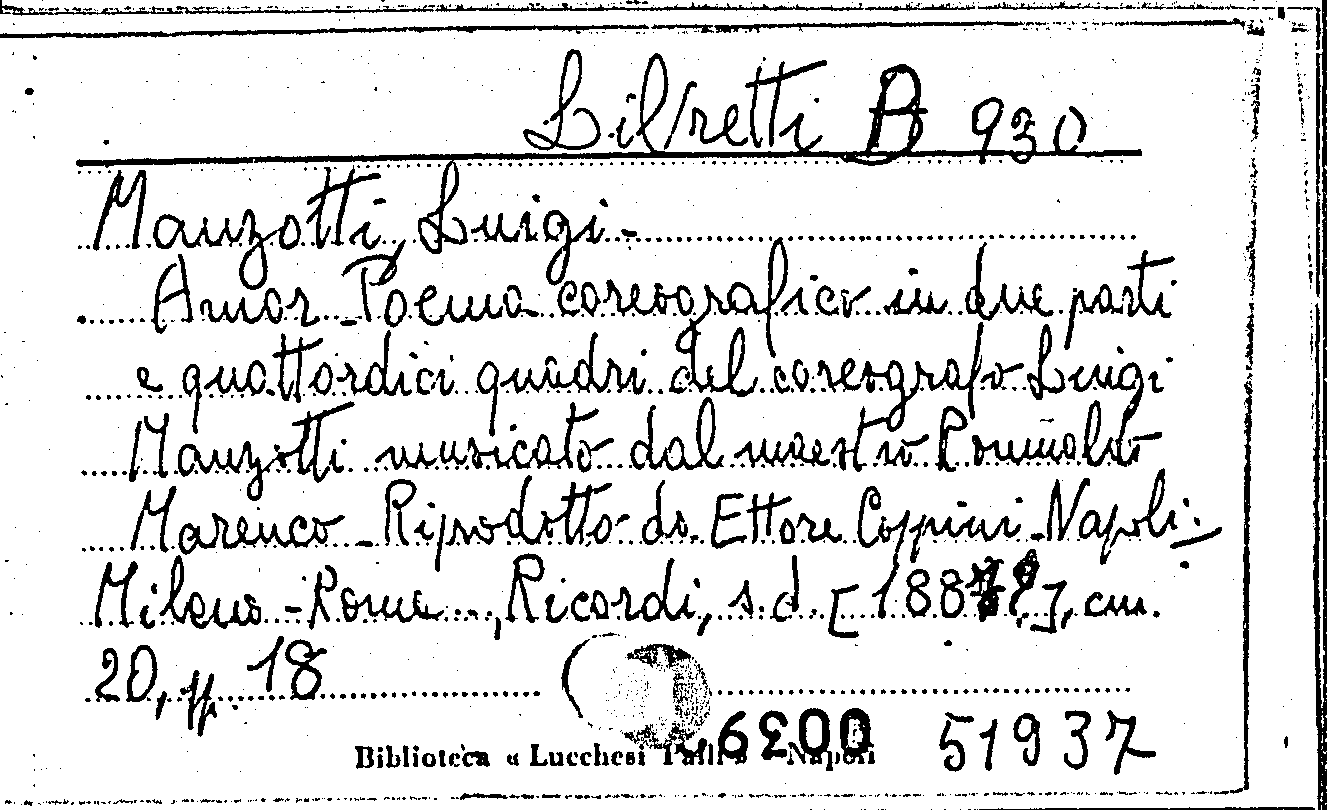 Libretti B 930
Manzotti, Luigi -
Amor - Poema coreografico in due parti
e quattordici quadri del coreografo Luigi
Manzotti musicato dal maestro Romualdo
Marenco - Riprodotto da Ettore Coppini - Napoli -
Milano - Roma ..., Ricordi, s.d. [188 ?], cm.
20, pp. 18
51937
Biblioteca « Lucchesi Palli » Napoli